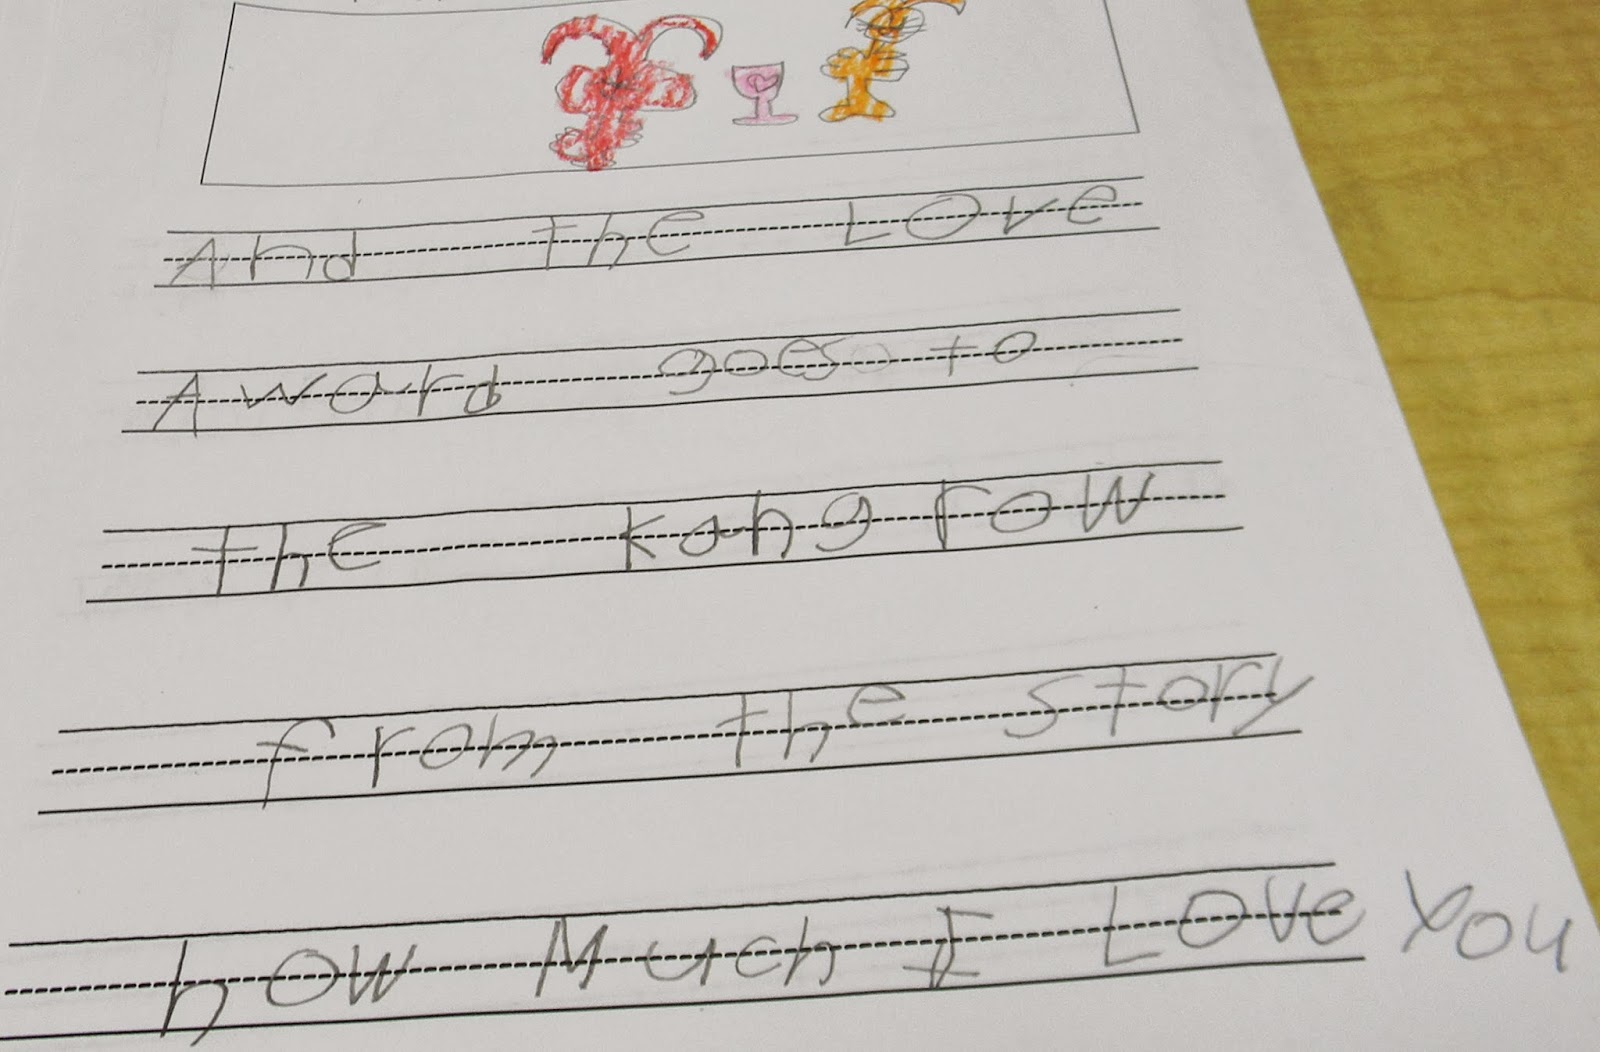 And the Love
Aword goes to
the kangrow
from the story
how Much I Love You